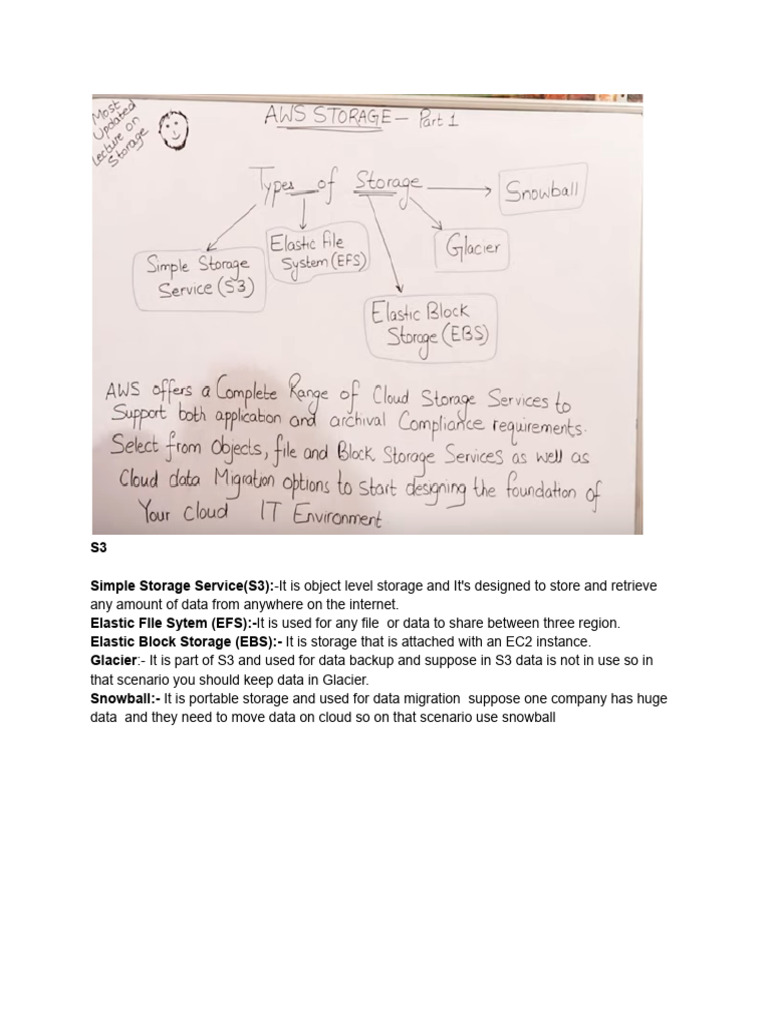 Most
Updated
Lecture on
Storage
AWS STORAGE — Part 1
Types of Storage
Snowball
Simple Storage
Service (S3)
Elastic File
System (EFS)
Glacier
Elastic Block
Storage (EBS)
AWS offers a Complete Range of Cloud Storage Services to
Support both application and archival Compliance requirements.
Select from Objects, file and Block Storage Services as well as
Cloud data Migration options to start designing the foundation of
Your cloud IT Environment
S3
Simple Storage Service(S3):-It is object level storage and It's designed to store and retrieve
any amount of data from anywhere on the internet.
Elastic FIle Sytem (EFS):-It is used for any file or data to share between three region.
Elastic Block Storage (EBS):- It is storage that is attached with an EC2 instance.
Glacier:- It is part of S3 and used for data backup and suppose in S3 data is not in use so in
that scenario you should keep data in Glacier.
Snowball:- It is portable storage and used for data migration suppose one company has huge
data and they need to move data on cloud so on that scenario use snowball